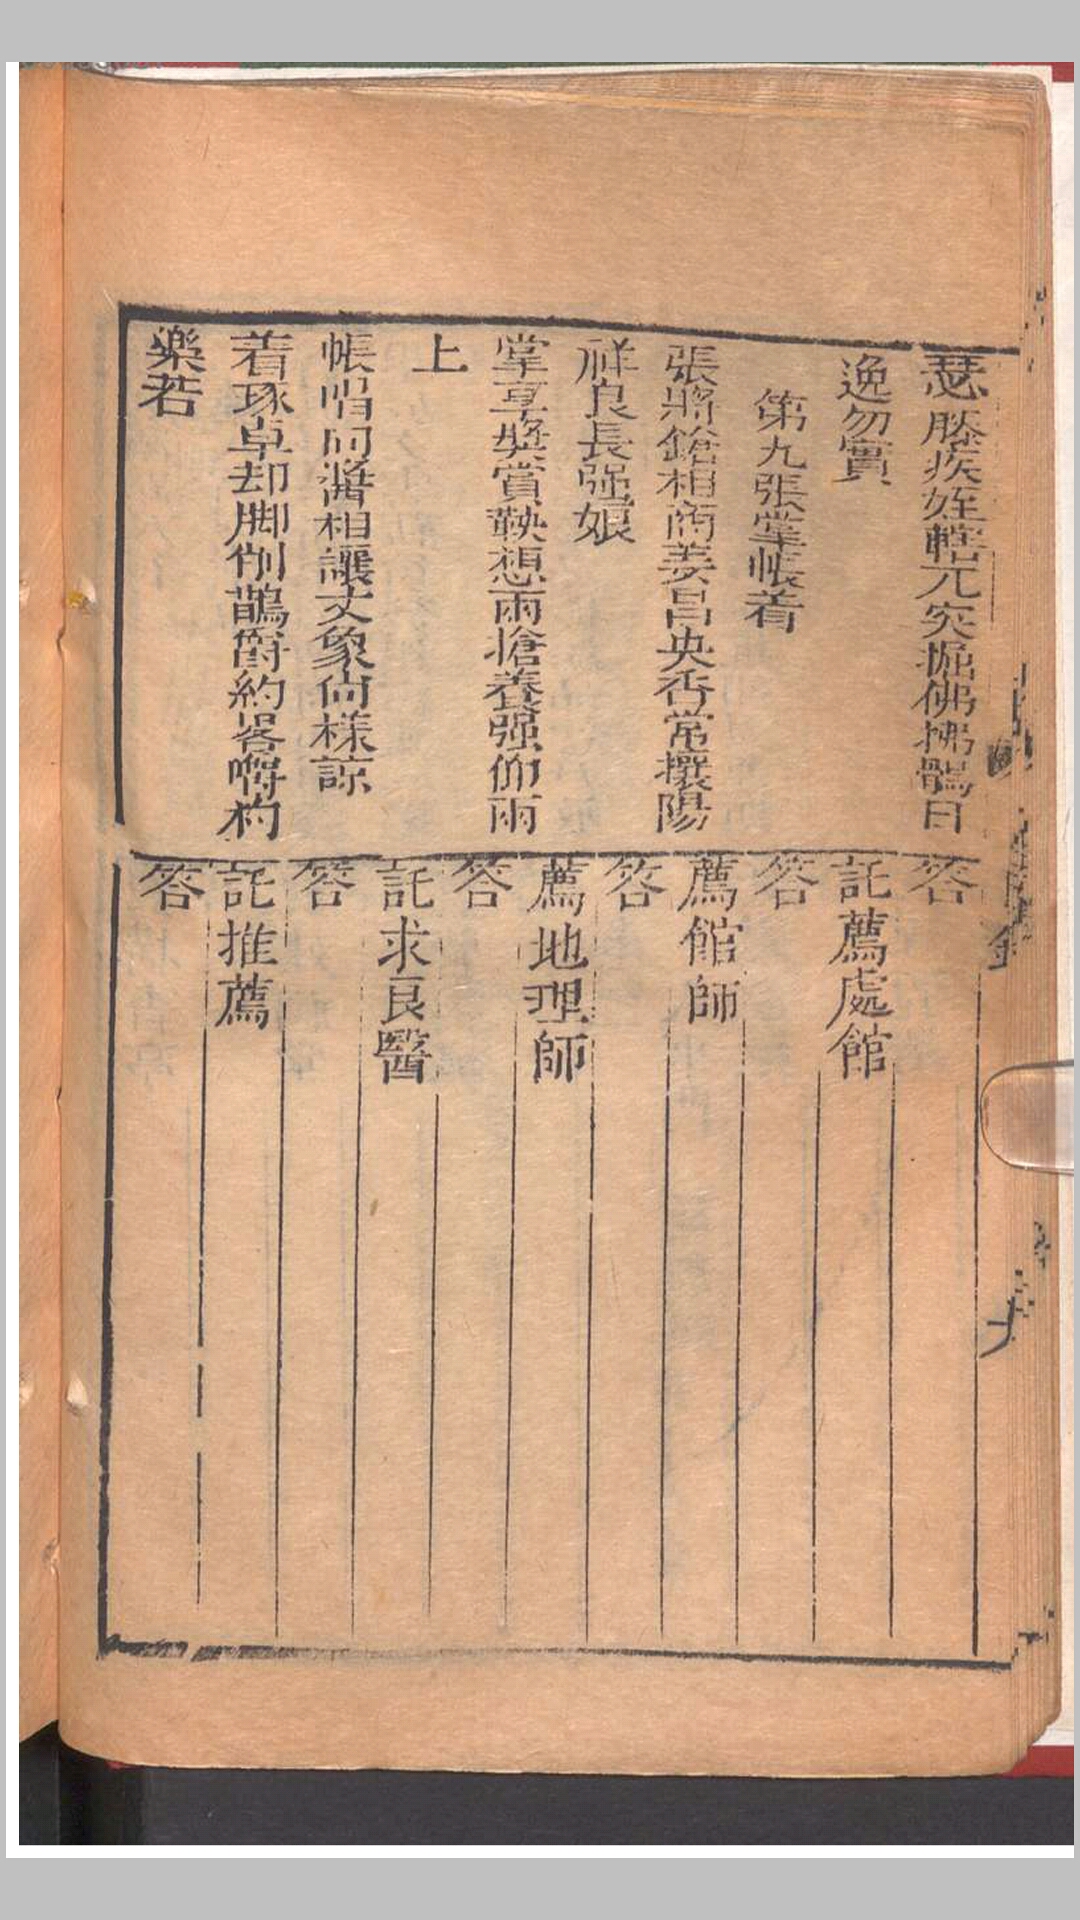 瑟膝疾姪轄兀突掘佛拂鶻日
逸勿實
第九張掌帳着
張將鎗相商姜昌央香常攘陽
祥良長强娘
掌享奬賞鞅想兩搶養强仰兩
上
帳唱向醬相讓丈象尙樣諒
着琢卓却脚削鵲爵約畧嚼杓
樂若
答
託薦處館
答
薦館師
答
薦地理師
答
託求良醫
答
託推薦
答